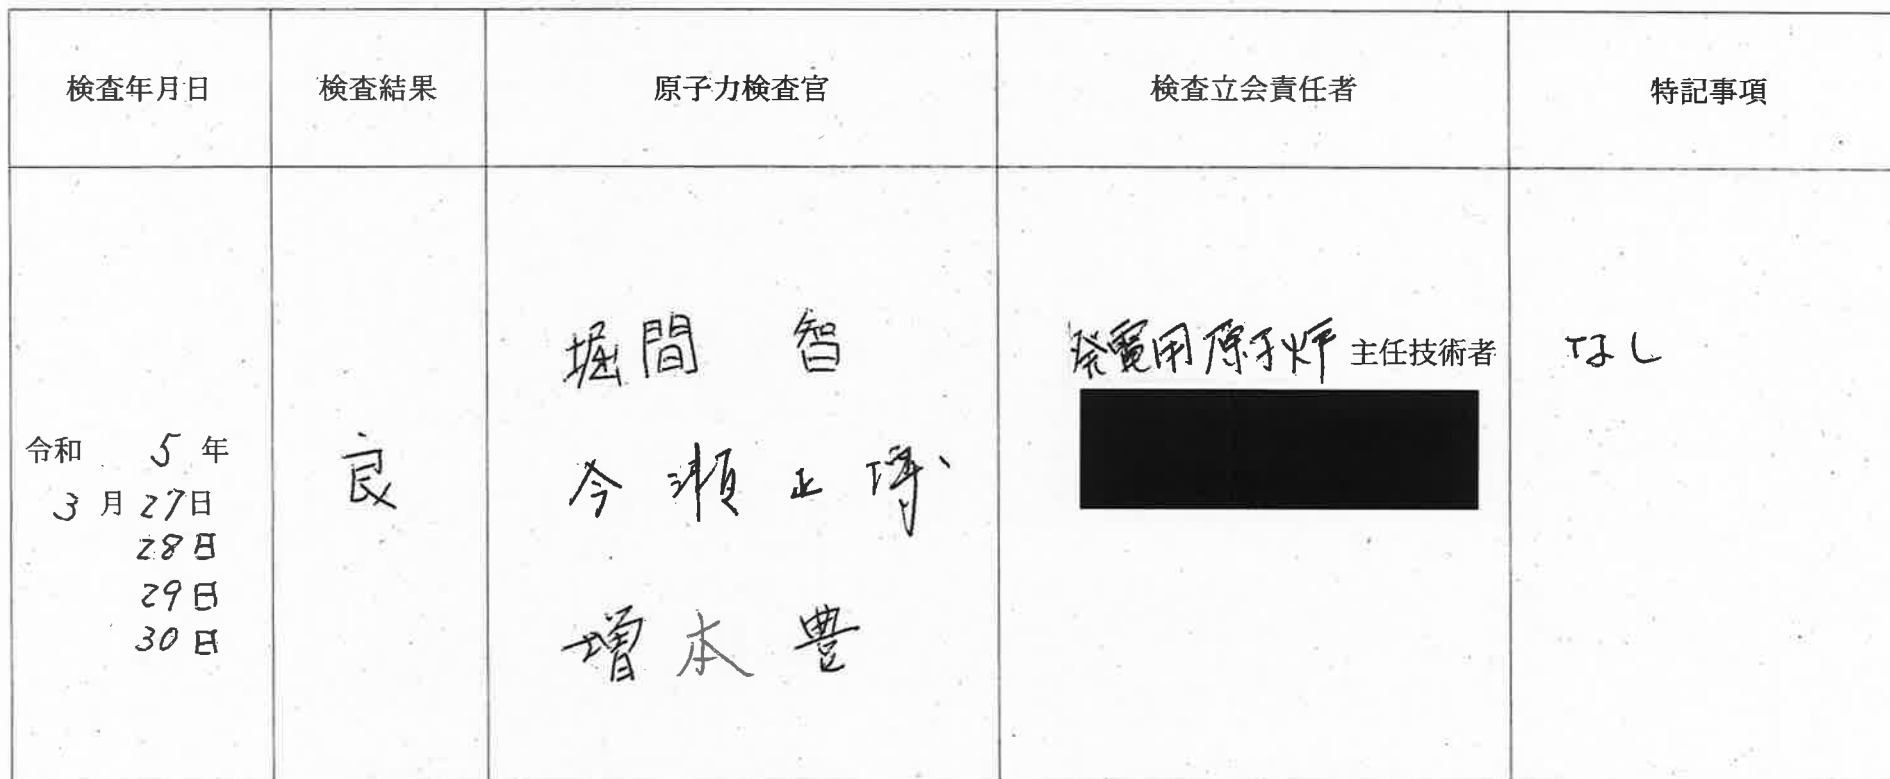 検査年月日
検査結果
原子力検査官
検査立会責任者
特記事項
令和 5 年
3 月 27日
28日
29日
30日
良
堀間 智
今瀬正博
増本 豊
発電用原子炉主任技術者
なし